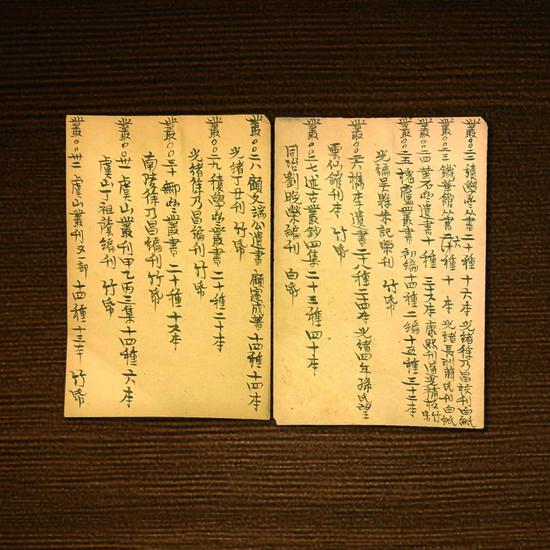 叢〇〇二二 積學齋丛書二十種 十六本 光緒徐乃昌校刊白紙
叢〇〇二三 鐵華館丛書六種 十本 光緒長洲蔣氏刊白紙
叢〇〇二四 遺書十種 二十六本 康熙刊 竹帋
叢〇〇二五 槐廬叢書 初編十四種二編十五種三十二本
光緒吳縣朱記榮刊 竹帋
叢〇〇二六 檇李遺書二十八種二十四本 光緒四年孫氏望
雲仙館刊本 竹帋
叢〇〇二七 述古叢鈔四集二十三種四十本
同治劉晚榮編刊 白帋
叢〇〇二八 顧文端公遺書 顧憲成著 十四種十四本
光緒丁丑刊 竹帋
叢〇〇二九 積學齋叢書二十種二十本
光緒徐乃昌編刊 竹帋
叢〇〇三十 鄦齋叢書二十種十六本
南陵徐乃昌編刊 竹帋
叢〇〇卅一 虞山叢刊甲乙丙三集十四種六本
虞山丁祖蔭編刊 竹帋
叢〇〇卅二 虞山叢刊又一部 十四種十三本 竹帋